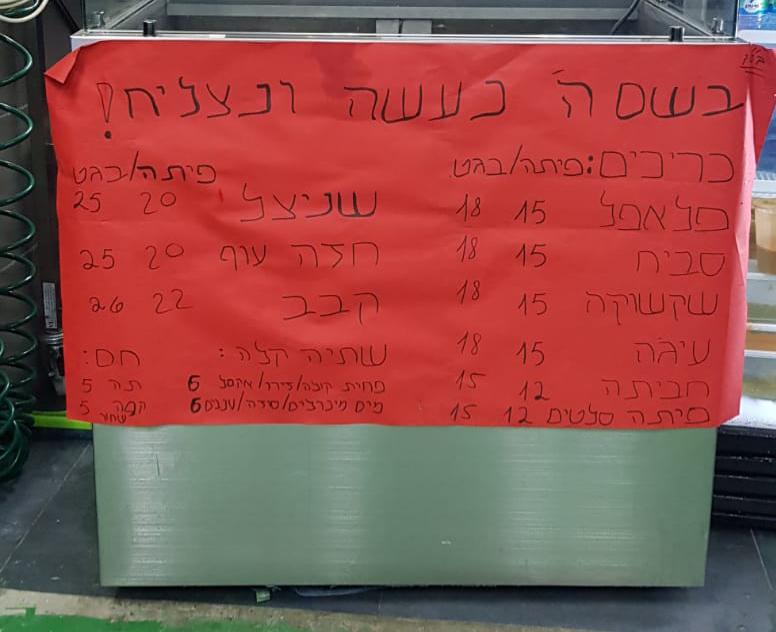 בס"ד
בשם ה' נעשה ונצליח!
כריכים: פיתה/בגט
פלאפל 15 18
סביח 15 18
שקשוקה 15 18
עיגה 15 18
חביתה 12 15
פיתה סלטים 12 15
פיתה/בגט
שניצל 20 25
חזה עוף 20 25
קבב 22 26
שתיה קלה:
פחית קולה/זירו/אקסל 6
מים מינרלים/סודה/ענבים 6
חם:
תה 5
קפה 5
שחור